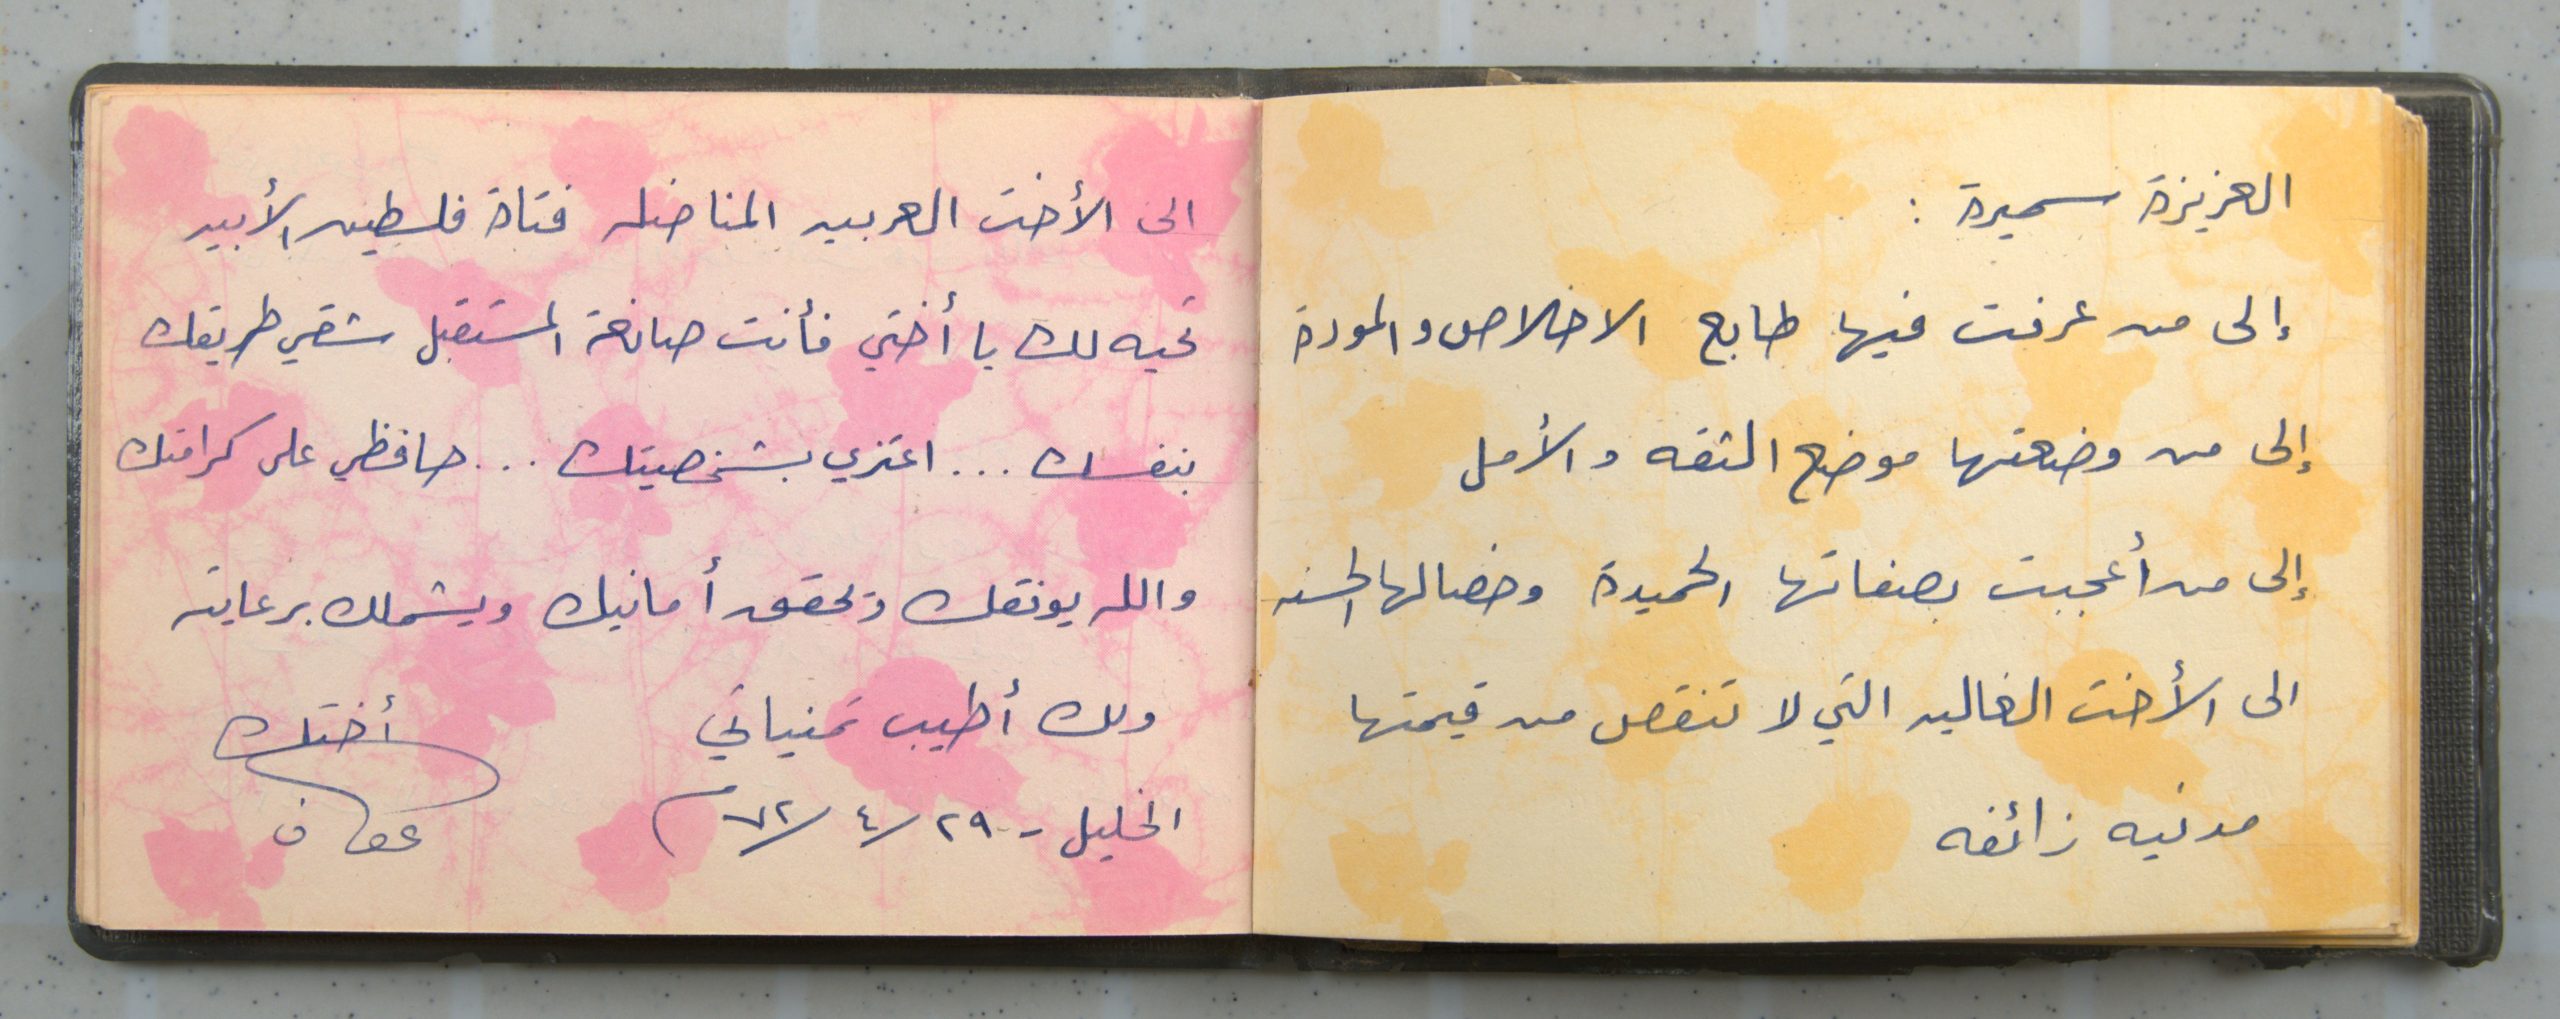 العزيزة سميرة :
إلى من عرفت فيها طابع الاخلاص والمودة
إلى من وضعتها موضع الثقه والأمل
إلى من أعجبت بصفاتها الحميدة وخصالها الحسنه
الى الأخت الغاليه التي لا تنقص من قيمتها
مدنيه زائفه
الى الأخت العربيه المناضله فتاة فلسطين الأبيه
تحيه لك يا أختي فأنت صانعة المستقبل شقي طريقك
بنفسك ... اعتزي بشخصيتك ... حافظي على كرامتك
والله يوفقك ويحقق أمانيك ويشملك برعايته
ولك أطيب تمنياتي أختك
الخليل - ٢٩/٤/٧٢ م عفاف